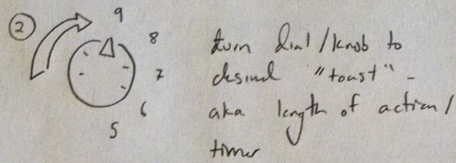 2
9
8
7
6
5
turn dial/knob to
desired "toast" -
aka length of action/
timer